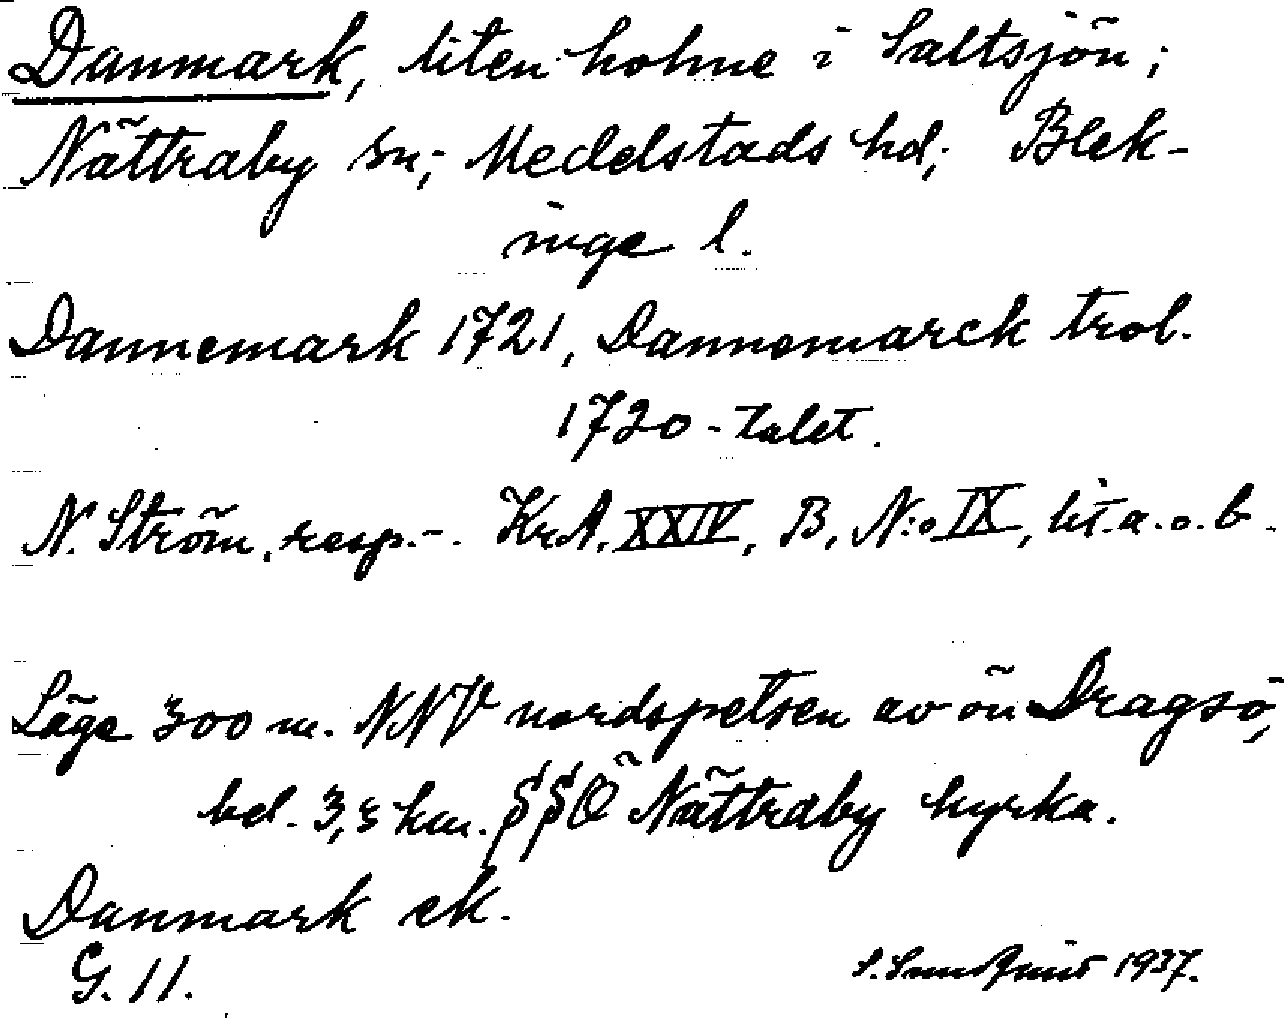 Danmark, liten holme i Saltsjön;
Nättraby sn; Medelstads hd; Blek-
inge l.
Dannemark 1721, Dannemarck trol.
1720-talet.
N. Ström, resp. -. Kr.A. XXIV, B, N:o IX, lit. a. o. b.
Läge 300 m. NNV nordspetsen av ön Dragsö,
bel. 3,5 km. SSÖ Nättraby kyrka.
Danmark ek.
G. 11.
S. Sundquist 1937.